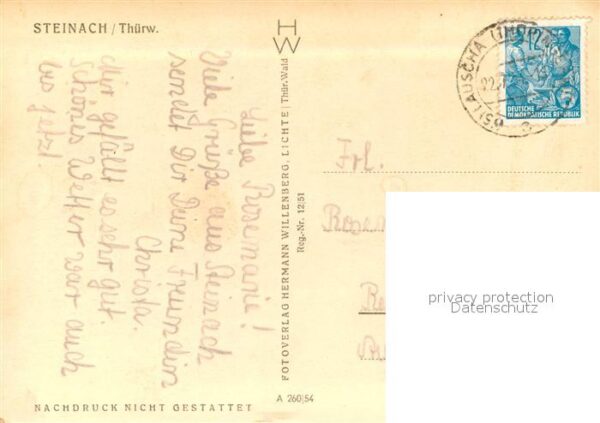 STEINACH / Thürw.
HW
Liebe Rosemarie!
Viele Grüße aus Steinach
sendet Dir Deine Freundin
Christa.
Mir gefällt es sehr gut.
Schönes Wetter war auch
bis jetzt.
FOTOVERLAG HERMANN WILLENBERG, LICHTE / Thür. Wald
Reg.-Nr. 12/51
LAUSCHA (THÜR
DEUTSCHE
DEMOKRATISCHE REPUBLIK
5
Frl.
privacy protection
Datenschutz
A 260/54
NACHDRUCK NICHT GESTATTET